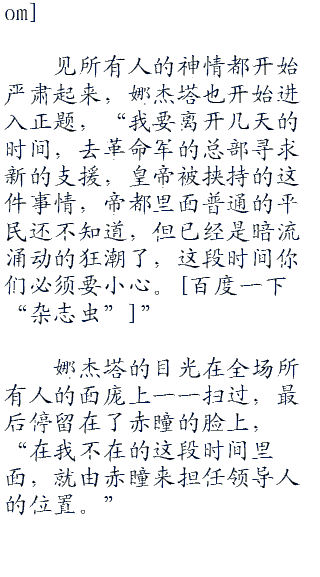 om]
见所有人的神情都开始
严肃起来，娜杰塔也开始进
入正题，“我要离开几天的
时间，去革命军的总部寻求
新的支援，皇帝被挟持的这
件事情，帝都里面普通的平
民还不知道，但已经是暗流
涌动的狂潮了，这段时间你
们必须要小心。[百度一下
“杂志虫”]”
娜杰塔的目光在全场所
有人的面庞上一一扫过，最
后停留在了赤瞳的脸上，
“在我不在的这段时间里
面，就由赤瞳来担任领导人
的位置。”